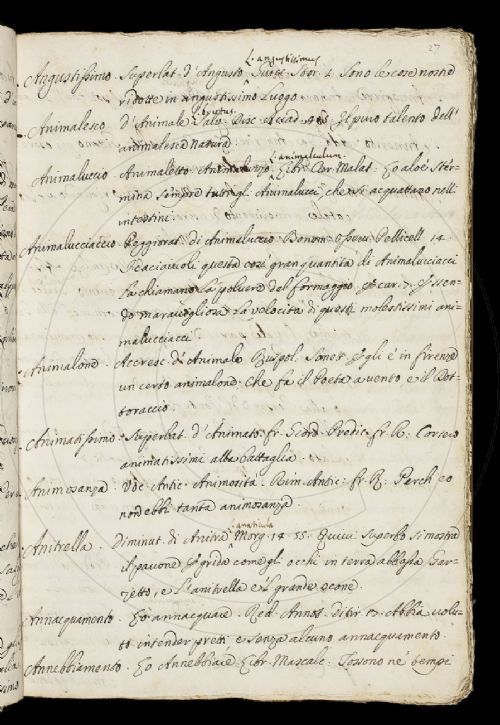 27
L. angustissimus
Angustissimo. Superlat. d'Angusto. Stor. 1. Sono le cose nostre
ridotte in angustissimo Luogo.
Animalesco d'Animale. Salv. Disc. Il puro talento dell'
animalesca Natura.
L. animalculum.
Animaluccio Animaletto Libr. Cur. Malat. Lo aloè stér-
mina sempre tutti gl'Animalucci che si acquattano nelli
intestini.
Animalucciaccio. Peggiorat. di Animaluccio. Bonom. Osserv. Pellicell. 14.
questa così gran quantità di Animalucciacci
La chiamano La polvere del formaggio. car. 7. Essen-
do maravigliosa La velocità di questi molestissimi ani-
malucciacci
Animalone. Accresc. di Animale. Sonett. Egli è in firenze
un certo animalone che fa il Poeta a vento e il Dot-
toraccio.
Animatissimo. Superlat. d'Animato. fr. Giord. Predic. fr. R. Corsero
animatissimi alla battaglia.
Animosanza. Voc. Antic. Animosità. Rim. Antic. fr. R. Perch'eo
non ebbi tanta animosanza.
L. anaticula
Anitrella. Diminut. di Anitra. Morg. 14. 55. Quivi superbo si mostra
Il pavone, gridò come gli occhi in terra abbassa Gar-
zetto, e L'anitrella e'l grande ocone.
Annacquamento. Lo annacquare. Red. Annot. Ditir. 13. Abbia volu-
to intender pretti e senza alcuno annacquamento.
Annebbiamento. Lo Annebbiare. Libr. Mascalc. Tossono ne' tempi